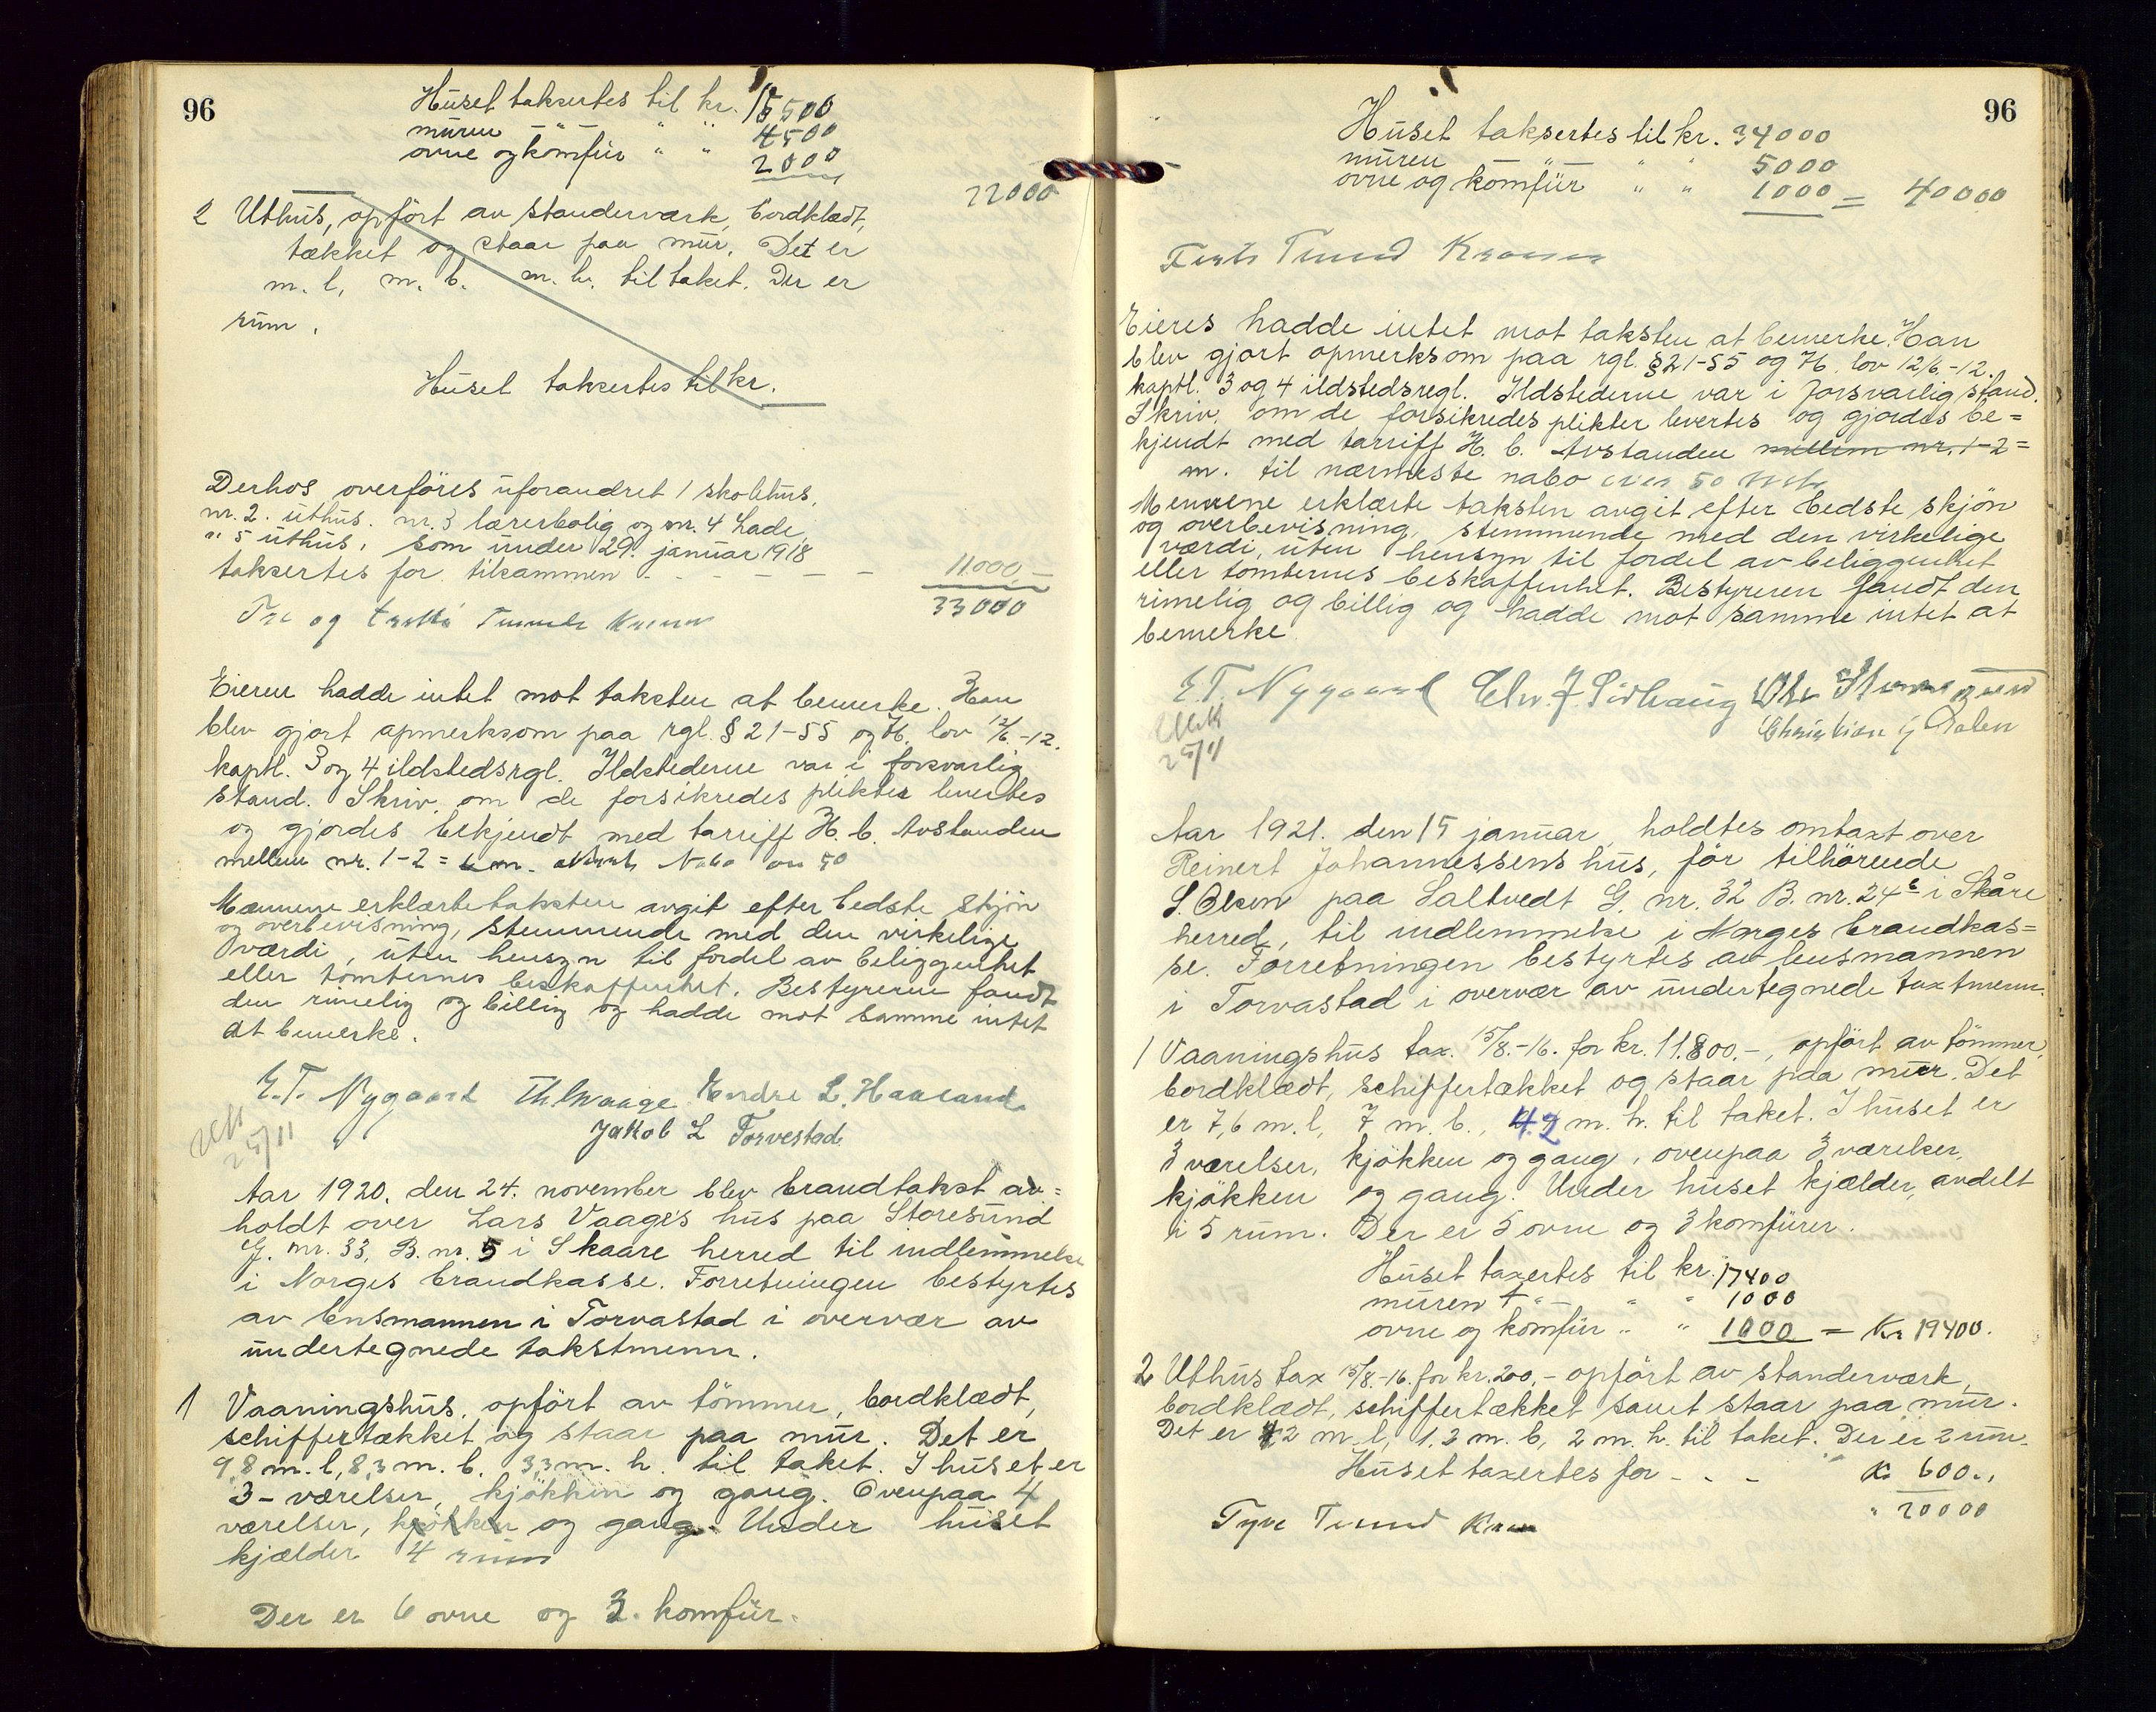 96
Huset taksertes til kr. 15500
muren — " — " " 4500
ovne og komfür " " 2000
22000
2 Uthus, opfört av standerværk, bordklædt,
tækket og staar paa mur. Det er
m. l, m. b. m. h. til taket. Der er
rum.
Huset taksertes til kr.
Derhos overföres uforandret 1 skolehus,
nr. 2. uthus. nr. 3 lærerbolig og nr. 4 Lade,
" 5 uthus, som under 29. januar 1918
taksertes for tilsammen - - - - - 11000,-
33000
Tre og tretti Tusinde Kroner
Eieren hadde intet mot taksten at bemerke. Han
blev gjort opmerksom paa rgl. § 21-55 og 76. lov 12/6-12.
kaptl. 3 og 4 ildstedsrgl. Ildstederne var i forsvarlig
stand. Skriv. om de forsikredes plikter levertes
og gjordes bekjendt med tarriff H. b. Avstanden
mellem nr. 1-2 = 6 m. Nabo 50
Mænnene erklærte taksten avgit efter bedste skjön
og overbevisning, stemmende med den virkelige
værdi, uten hensyn til fordel av beliggenhet
eller tomternes beskaffenhet. Bestyreren fandt
den rimelig og billig og hadde mot samme intet
at bemerke.
E. T. Nygaard Th Waage Endre L. Haaland
Jakob L Torvestad
25/11
Aar 1920. den 24. november blev brandtakst av=
holdt over Lars Vaage's hus paa Storesund
G. nr. 33, B. nr. 5 i Skaare herred til indlemmelse
i Norges brandkasse. Forretningen bestyrtes
av lensmannen i Torvastad i overvær av
undertegnede takstmenn.
1 Vaaningshus, opfört av tömmer, bordklædt,
schiffertækket og staar paa mur. Det er
9,8 m. l, 8,3 m. b. 3,3 m. h. til taket. I huset er
3 - værelser, kjökken og gang. Ovenpaa 4
værelser, kjökken og gang. Under huset
kjælder 4 rum
Der er 6 ovne og 3. komfür.
96
Huset taksertes til kr. 34000
muren — " — " " 5000
ovne og komfür " " 1000 = 40000
Firti Tusind Kroner
Eieres hadde intet mot taksten at bemerke. Han
blev gjort opmerksom paa rgl. § 21-55 og 76. lov 12/6-12.
kaptl. 3 og 4 ildstedsregl. Ildstederne var i forsvarlig stand.
Skriv. om de forsikredes plikter levertes og gjordes be=
kjendt med tarriff H. b. Avstanden mellem nr. 1-2=
m. til nærmeste nabo over 50 mtr
Mennene erklærte taksten avgit efter bedste skjön
og overbevisning, stemmende med den virkelige
værdi, uten hensyn til fordel av beliggenhet
eller tomternes beskaffenhet. Bestyreren fandt den
rimelig og billig og hadde mot samme intet at
bemerke.
E. T. Nygaard Chr. J. Sirhaug
Christian G Dalen
25/11
Aar 1921. den 15 januar, holdtes omtaxt over
Reinert Johannessens hus, för tilhörende
S. Olsen paa Saltvedt G. nr. 32 B. nr. 24 i Skåre
herred, til indlemmelse i Norges brandkas=
se. Forretningen bestyrtes av lensmannen
i Torvastad i overvær av undertegnede taxtmenn.
1 Vaaningshus tax. 15/8.-16. for kr. 11.800.-, opfört av tömmer,
bordklædt, schiffertækket og staar paa mur. Det
er 7,6 m. l, 7 m. b., 4.2 m. h. til taket. I huset er
3 værelser, kjökken og gang, ovenpaa 3 værelser,
kjökken og gang. Under huset kjælder, avdelt
i 5 rum. Der er 5 ovne og 3 komfürer.
Huset taxertes til kr. 17400
muren — " — " " 1000
ovne og komfür " " 1000 = Kr 19400.
2 Uthus tax 15/8.-16. for kr. 200.- opfört av standerværk,
bordklædt, schiffertækket samt staar paa mur.
Det er 2 m. l, 1.2 m. b, 2 m. h. til taket. Der er 2 rum.
Huset taxertes for - - - Kr 600.,
" 20000
Tyve Tusind Kroner